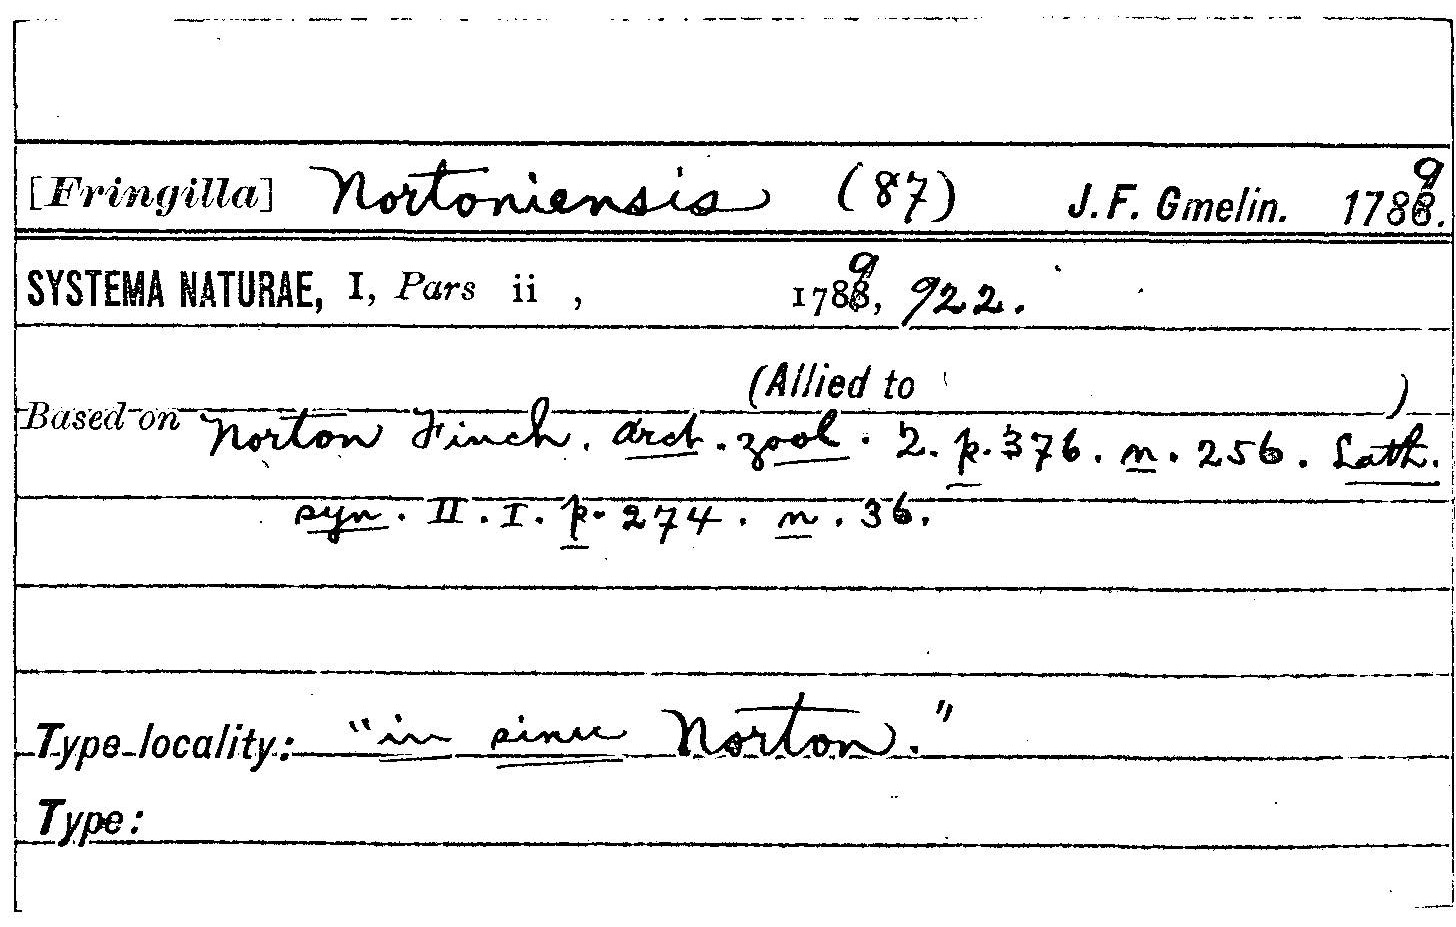 [Fringilla] Nortoniensis (87) J. F. Gmelin. 1789.
SYSTEMA NATURAE, I, Pars ii , 1789, 922.
(Allied to )
Based on Norton Finch. Arct. zool. 2. p. 376. n. 256. Lath.
syn. II. I. p. 274. n. 36.
Type-locality: "in sinu Norton."
Type: